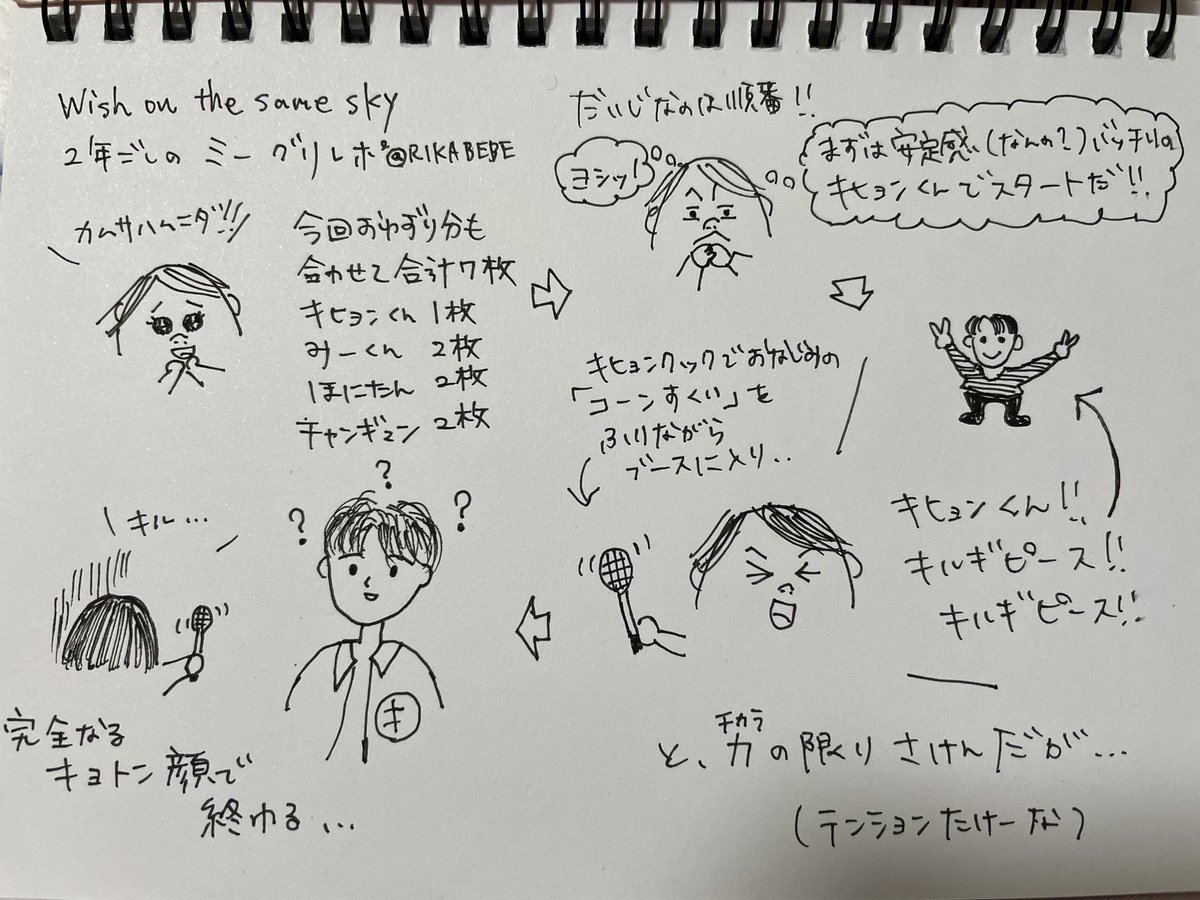 Wish on the same sky
2年ごしの ミーグリレポ@RIKABEBE
カムサハムニダ!!
今回おゆずり分も
合わせて合計7枚
キヒョンくん 1枚
みーくん 2枚
ほにたん 2枚
チャンギュン 2枚
だいじなのは順番!!
ヨシッ!
まずは安定感(なんの?)バッチリの
キヒョンくんでスタートだ!!
キヒョンクックでおなじみの
「コーンすくい」を
ふりながら
ブースに入り..
キヒョンくん!!
キルギピース!!
キルギピース!!
と、力の限りさけんだが…
チカラ
(テンションたけーな)
? ? ?
キ
キル...
完全なる
キョトン顔で
終わる...